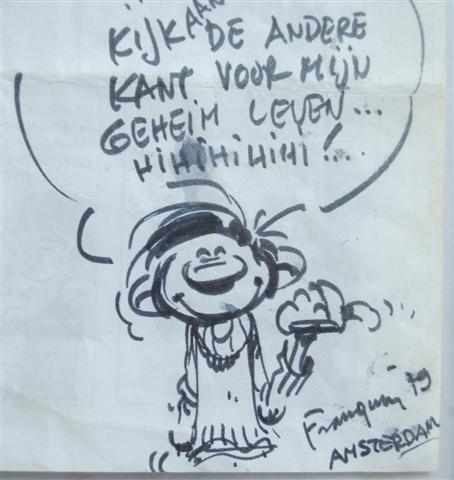 KIJK AAN DE ANDERE
KANT VOOR MIJN
GEHEIM LEVEN...
HIHIHIHIHI!..
Franquin 79
AMSTERDAM